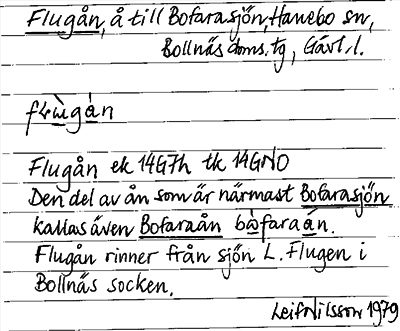 Flugån, å till Bofarasjön, Hanebo sn,
Bollnäs doms. tg, Gävl. l.
flù̱gȧn
Flugån ek 14G7h tk 14GNO
Den del av ån som är närmast Bofarasjön
kallas även Bofaraån bòfaraán.
Flugån rinner från sjön L. Flugen i
Bollnäs socken.
Leif Nilsson 1979